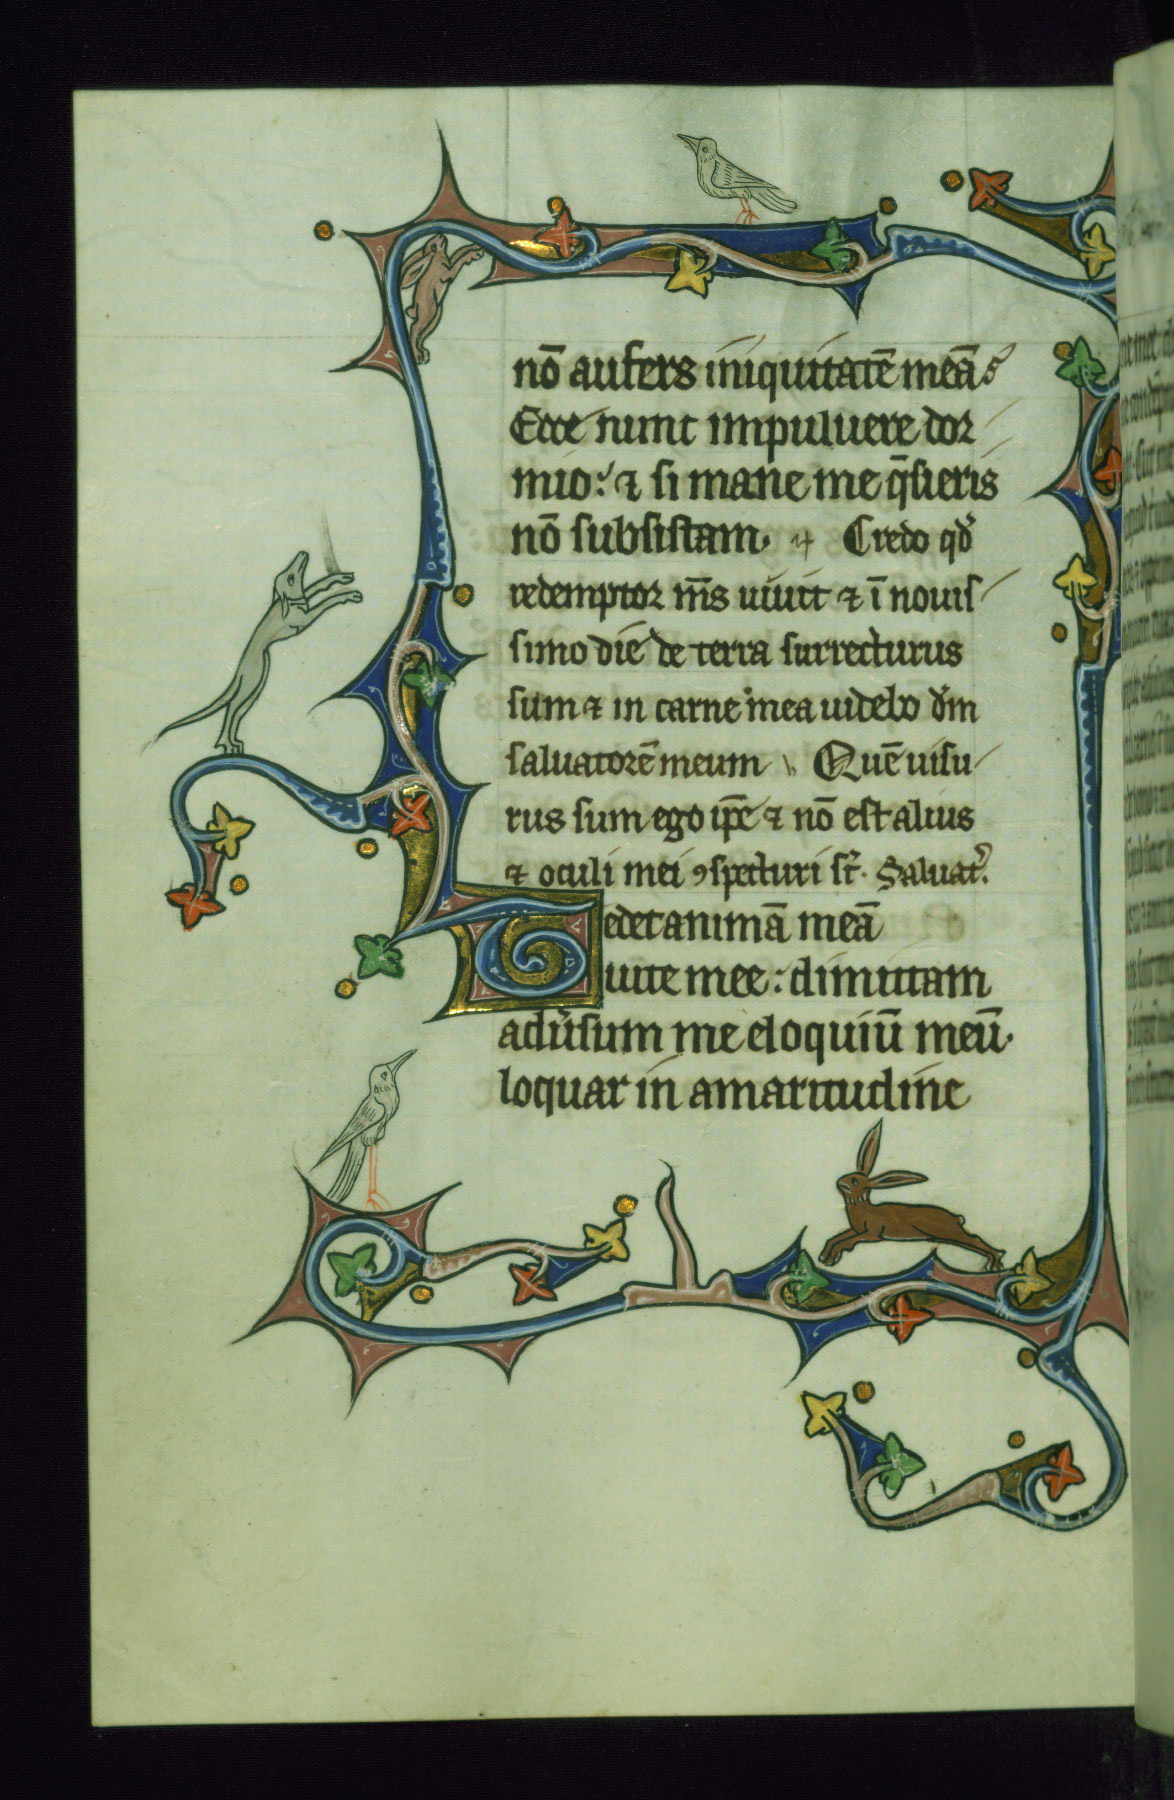 nō aufers iniquitatē meā
Ecce nunc impuluere dor
mio: ⁊ si mane me q̄sieris
nō subsistam. Credo qd̓
redemptor m̄s uiuit ⁊ ī nouis
simo die de terra surrecturus
sum ⁊ in carne mea uidebo d̄m
saluatorē meum Quē uisu
rus sum ego ip̄e ⁊ nō est alius
⁊ oculi mei ꝯspecturi st̄. Saluat᷑.
Tedet animā meā
uite mee: dimittam
adu̓sum me eloquiū meū.
loquar in amaritudine